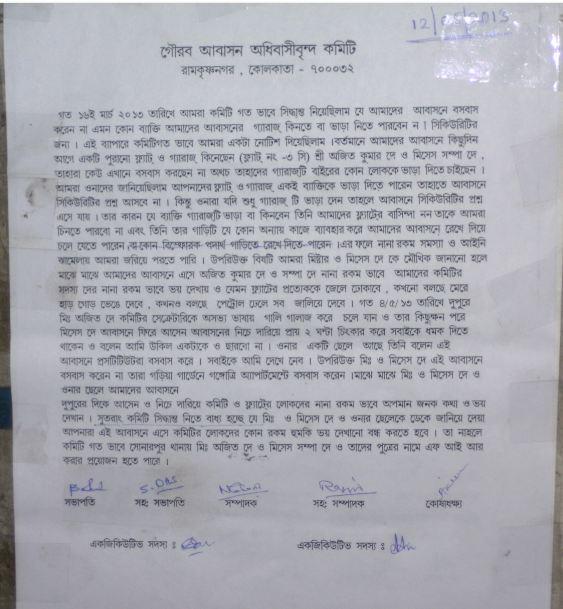 12/05/2013
গৌরব আবাসন অধিবাসীবৃন্দ কমিটি
রামকৃষ্ণনগর , কোলকাতা - ৭০০০৩২
গত ১৬ই মার্চ ২০১৩ তারিখে আমরা কমিটি গত ভাবে সিদ্ধান্ত নিয়েছিলাম যে আমাদের আবাসনে বসবাস
করেন না এমন কোন ব্যাক্তি আমাদের আবাসনের গ্যারাজ কিনতে বা ভাড়া নিতে পারবেন না ! সিকিউরিটির
জন্য । এই ব্যাপারে কমিটিগত ভাবে আমরা একটা নোটিশ দিয়েছিলাম ।বর্তমানে আমাদের আবাসনে কিছুদিন
আগে একটি পুরানো ফ্ল্যাট ও গ্যারাজ কিনেছেন (ফ্ল্যাট নং -৩ সি) শ্রী অজিত কুমার দে ও মিসেস সম্পা দে ,
তাহারা কেউ এখানে বসবাস করছেন না অথচ তাহাদের গ্যারাজটি বাইরের কোন লোককে ভাড়া দিতে চাইছেন ।
আমরা ওনাদের জানিয়েছিলাম আপনাদের ফ্ল্যাট ও গ্যারাজ একই ব্যাক্তিকে ভাড়া দিতে পারেন তাহাতে আবাসনে
সিকিউরিটির প্রশ্ন আসবে না । কিন্তু ওনারা যদি শুধু গ্যারাজ টি ভাড়া দেন তাহলে আবাসনে সিকিউরিটির প্রশ্ন
এসে যায় । তার কারন যে ব্যক্তি গ্যারাজটি ভাড়া বা কিনবেন তিনি আমাদের ফ্ল্যাটের বাসিন্দা নন তাকে আমরা
চিনতে পারবো না এবং তিনি তার গাড়িটি যে কোন অন্যায় কাজে ব্যাবহার করে আমাদের আবাসনে রেখে দিয়ে
চলে যেতে পারেন বা কোন বিস্ফোরক পদার্থ গাড়িতে রেখে দিতে পারেন ।এর ফলে নানা রকম সমস্যা ও আইনি
ঝামেলায় আমরা জরিয়ে পরতে পারি । উপরিউক্ত বিষটি আমরা মিষ্টার ও মিসেস দে কে মৌখিক জানানো হলে
মাঝে মাঝে আমাদের আবাসনে এসে অজিত কুমার দে ও সম্পা দে নানা রকম ভাবে আমাদের কমিটির
সদস্য দের নানা রকম ভাবে ভয় দেখায় ও যেমন ফ্ল্যটের প্রত্যেককে জেলে ঢোকাবে , কখনো বলছে মেরে
হাড় গোড় ভেঙে দেবে , কখনও বলছে পেট্রোল ঢেলে সব জালিয়ে দিবে । গত ৪/৫/১৩ তারিখে দুপুরে
মিঃ অজিত দে কমিটির সেক্রেটারিকে অসভ্য ভাষায় গালি গালাজ করে চলে যান ও তার কিছুক্ষন পরে
মিসেস দে আবাসনে ফিরে আসেন আবাসনের নিচে দারিয়ে প্রায় ২ ঘন্টা চিৎকার করে সবাইকে ধমক দিতে
থাকেন ও বলেন আমি উকিল একটাকে ও ছারবো না । ওনার একটি ছেলে আছে তিনি বলেন এই
আবাসনে প্রসটিটিউটরা বসবাস করে । সবাইকে আমি দেখে নেব । উপরিউক্ত মিঃ ও মিসেস দে এই আবাসনে
বসবাস করেন না তারা গড়িয়া গার্ডেনে গঙ্গোত্রি অ্যাপার্টমেন্টে বসবাস করেন ।মাঝে মাঝে মিঃ ও মিসেস দে ও
ওনার ছেলে আমাদের আবাসনে
দুপুরের দিকে আসেন ও নিচে দারিয়ে কমিটি ও ফ্ল্যটের লোকদের নানা রকম ভাবে অপমান জনক কথা ও ভয়
দেখান । সুতরাং কমিটি সিদ্ধান্ত নিতে বাধ্য হচ্ছে যে মিঃ ও মিসেস দে ও ওনার ছেলেকে ডেকে জানিয়ে দেয়া
আপনারা এই আবাসনে এসে কমিটির লোকদের কোন রকম হুমকি ভয় দেখানো বন্ধ করতে হবে । তা নাহলে
কমিটি গত ভাবে সোনারপুর থানায় মিঃ অজিত দে ও মিসেস সম্পা দে ও তাদের পুত্রের নামে এফ আই আর
করার প্রয়োজন হতে পারে ।
S. Das
সভাপতি সহঃ সভাপতি সম্পাদক সহঃ সম্পাদক কোষাধক্ষ্য
একজিকিউটিভ সদস্য ঃ একজিকিউটিভ সদস্য ঃ